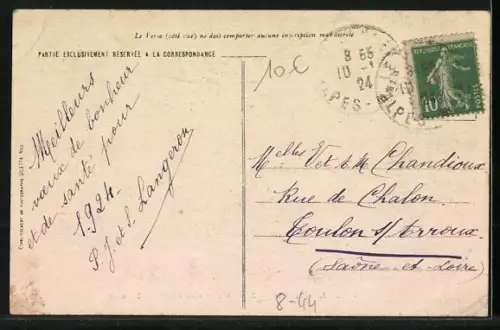 Le Verso (côté vue) ne doit comporter aucune inscription manuscrite
PARTIE EXCLUSIVEMENT RÉSERVÉE A LA CORRESPONDANCE
10€
8 55
10 -1
24
ALPES-
RÉPUBLIQUE FRANÇAISE
10c
POSTES
Meilleurs
vœux de bonheur
et de santé pour
1924.
P. J et S. Langeron
Melles V et M Chandioux
Rue de Chalon
Toulon s/ Arroux
(Saône-et-Loire)
8-44